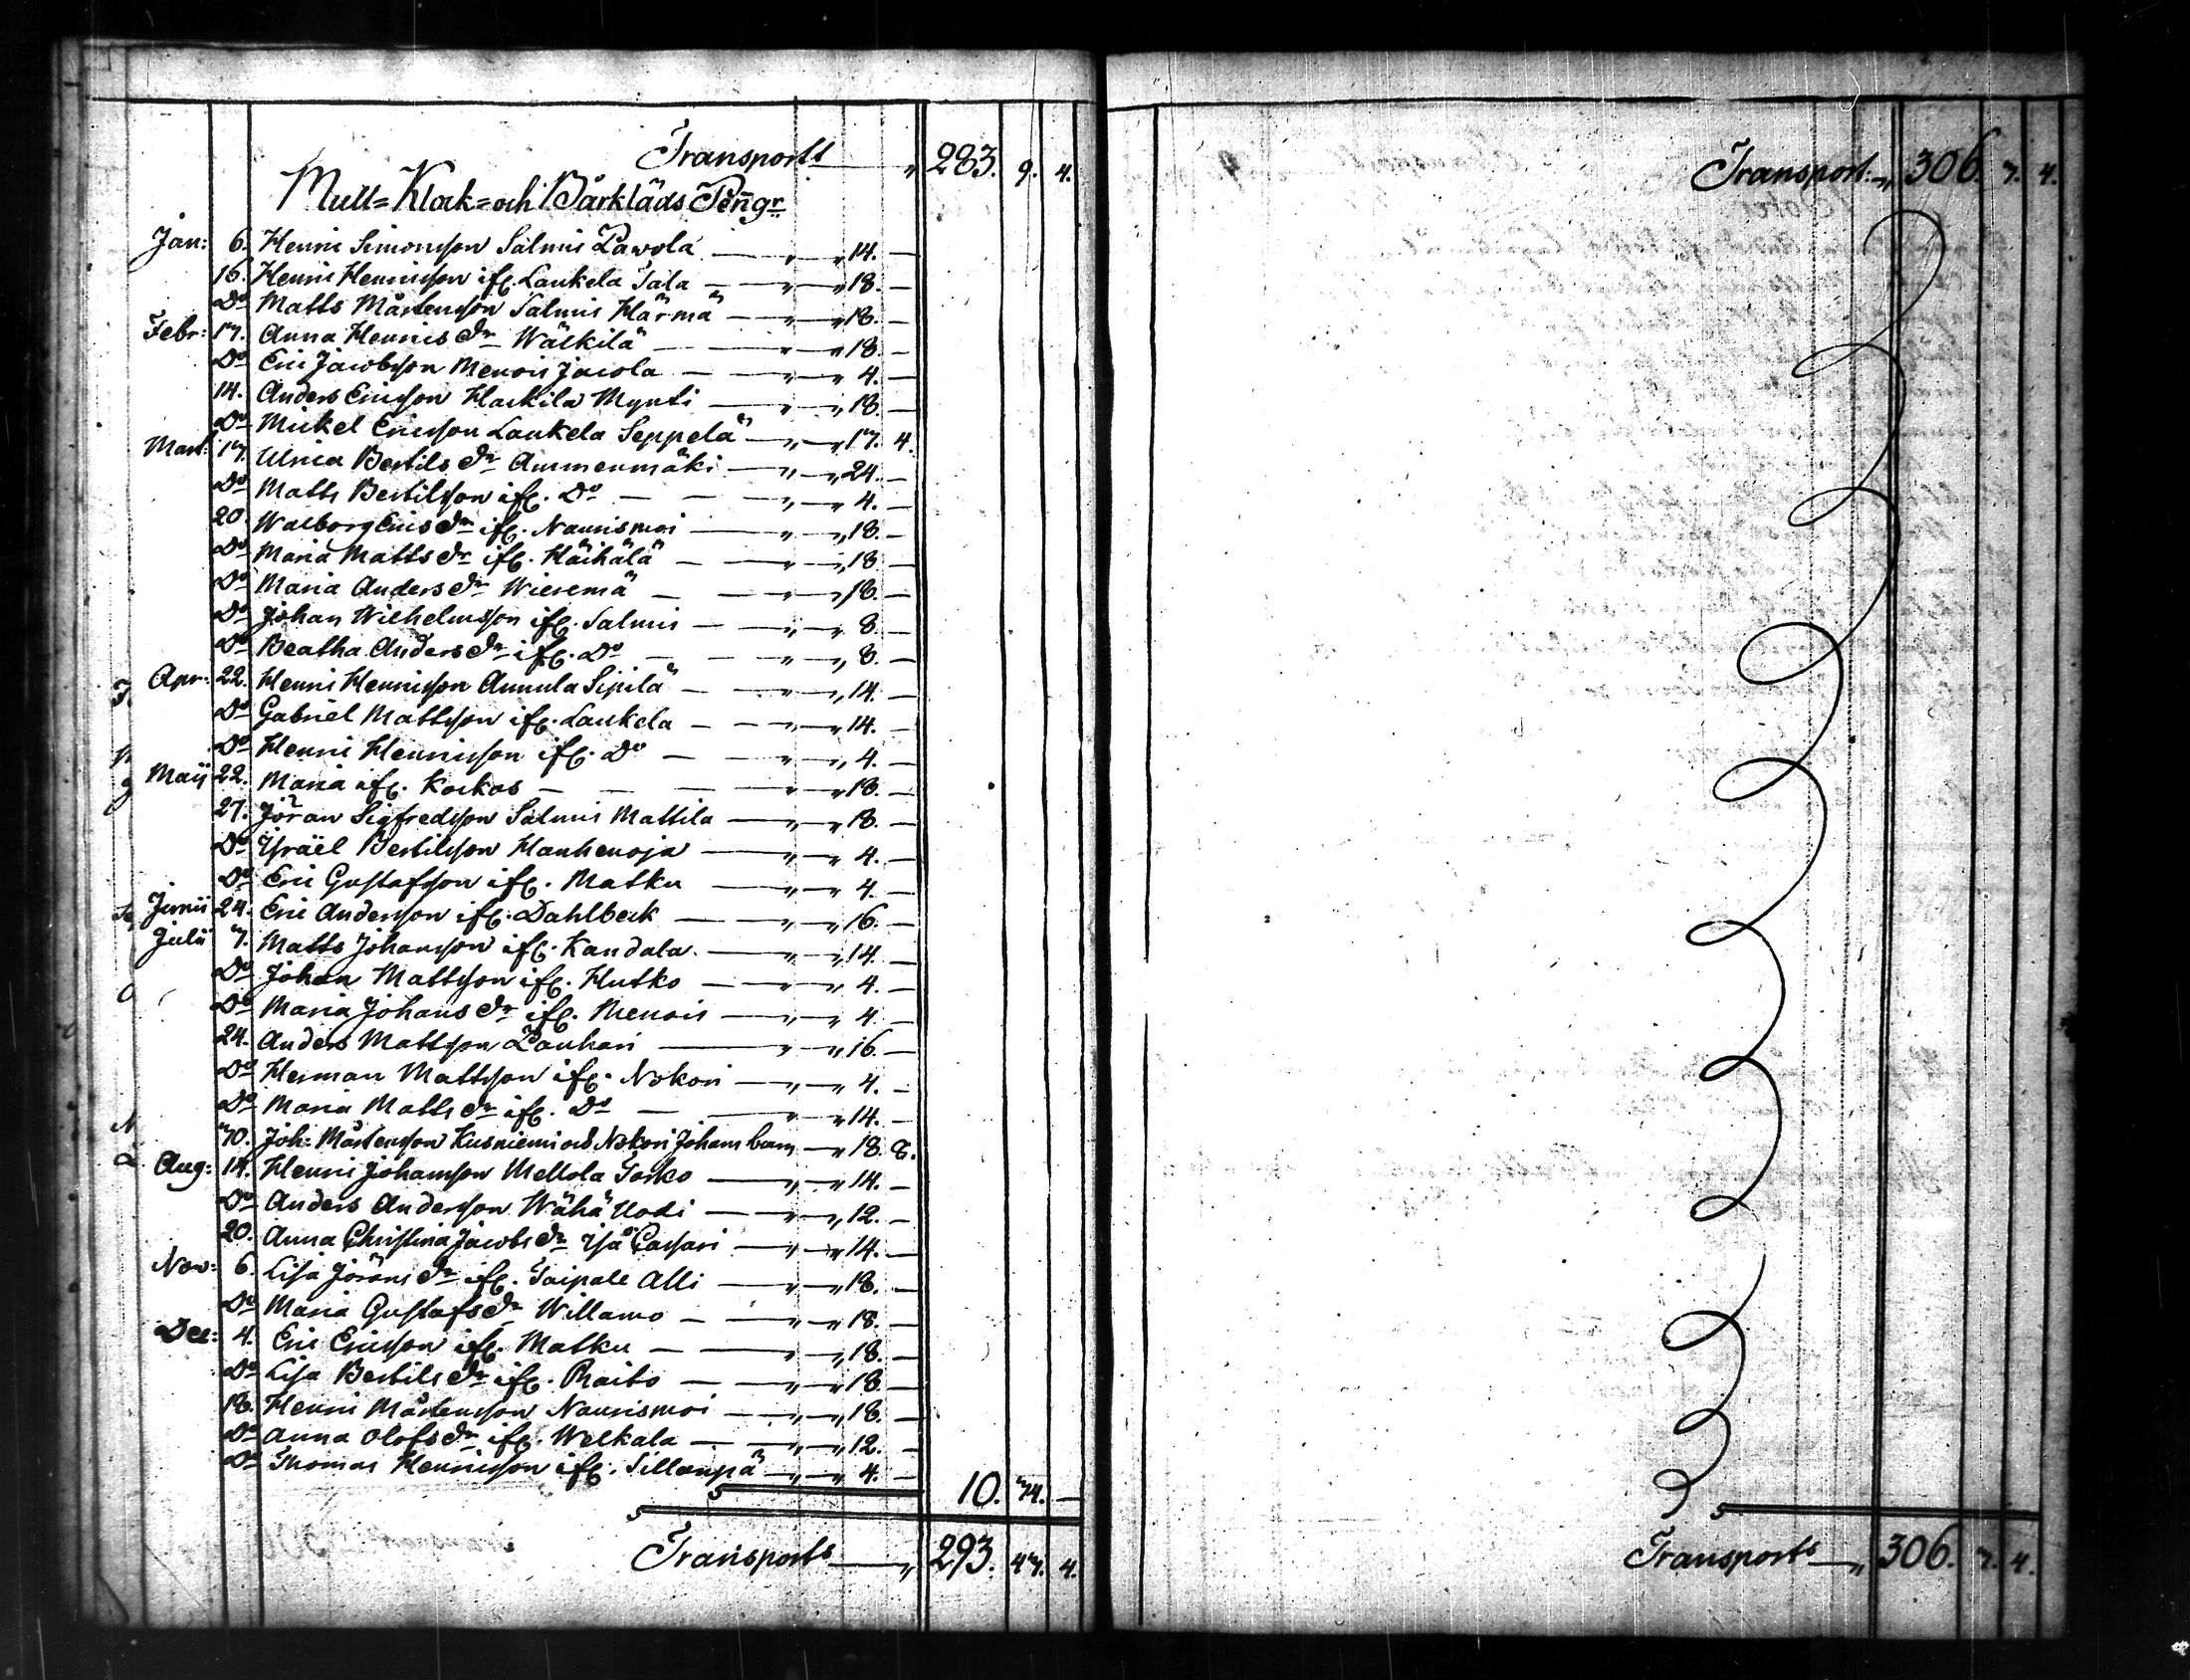 Transport „ 283. 9. 4.
Mull=Klok=och Bårkläds Peñgr
Jan: 6. Henric Simonsson Salmis Pavola — „ — „ 14. —
16. Henric Henricsson ifr. Laukela Tala — „ — „ 18. —
Do Matts Mårtensson Salmis Härmä — „ — „ 18. —
Febr: 17. Anna Henrics dr Wälkilä — „ — „ 18. —
Do Eric Jacobsson Menois Jacola — „ — „ 4. —
14. Anders Ericsson Hackila Mynti — „ — „ 18. —
Do Mickel Ericsson Laukela Seppelä — „ — „ 17. 4.
Mart: 17. Ulrica Bertils dr Ammenmäki — „ — „ 24. —
Do Matts Bertilsson ifr. Do — „ — „ 4. —
20. Walborg Erics dr ifr. Naurismoi — „ — „ 18. —
Do Maria Matts dr ifr. Häihälä — „ — „ 18 —
Do Maria Anders dr Wieremä — „ — „ 18. —
Do Johan Wilhelmsson ifr. Salmis — „ — „ 8. —
Do Beatha Anders dr ifr. Do — „ — „ 8. —
Apr: 22. Henric Henricsson Annula Sipilä — „ — „ 14. —
Do Gabriel Mattsson ifr. Laukela — „ — „ 14. —
Do Henric Henricsson ifr. Do — „ — „ 4. —
Maij 22. Maria ifr. Kockos — „ — „ 18. —
27. Jöran Sigfredsson Salmis Mattila — „ — „ 18. —
Do Israël Bertilsson Hanhenoja — „ — „ 4. —
Do Eric Gustafsson ifr. Matku — „ — „ 4. —
Junii 24. Eric Andersson ifr. Dahlbeck — „ — „ 16. —
Julii 7. Matts Johansson ifr. Kandala — „ — „ 14. —
Do Johan Mattsson ifr. Hutko — „ — „ 4. —
Do Maria Johans dr ifr. Menois — „ — „ 4. —
24. Anders Mattsson Pauhari — „ — „ 16. —
Do Herman Mattsson ifr. Nokori — „ — „ 4. —
Do Maria Matts dr ifr. Do — „ — „ 14. —
Joh: Mårtensson Kusniemi och Nokori Johans barn — „ 18. 8.
Aug: 14. Henric Johansson Mellola Torko — „ — „ 14. —
Do Anders Andersson Wähä Uodi — „ — „ 12. —
20. Anna Christina Jacobs dr Iso Cassari — „ — „ 14. —
Nov: 6. Lisa Jörans dr ifr. Taipale Alli — „ — „ 18. —
Do Maria Gustafs dr Willamo — „ — „ 18. —
Dec: 4. Eric Ericsson ifr. Matku — „ — „ 18. —
Do Lisa Bertils dr ifr. Raito — „ — „ 18. —
18. Henric Mårtensson Naurismoi — „ — „ 18. —
Do Anna Olofs dr ifr. Welkala — „ — „ 12. —
Do Thomas Henricsson ifr. Sillanpä — „ — „ 4. —
10. —
Transports „ 293. 47. 4.
Transport: „ 306. 7. 4.
Transports „ 306. 7. 4.